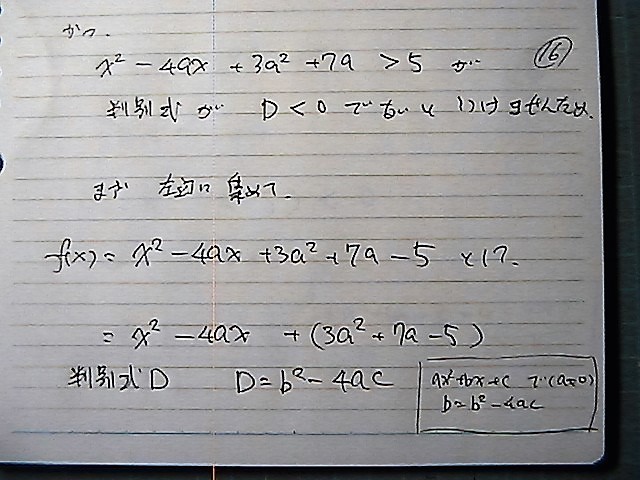 かつ、
⑯
x² - 4ax + 3a² + 7a > 5 が
判別式が D < 0 でないといけませんため、
まず 左辺に 集めて、
f(x) = x² - 4ax + 3a² + 7a - 5 として、
= x² - 4ax + (3a² + 7a - 5)
判別式D D = b² - 4ac
ax² + bx + c で(a≠0)
D = b² - 4ac